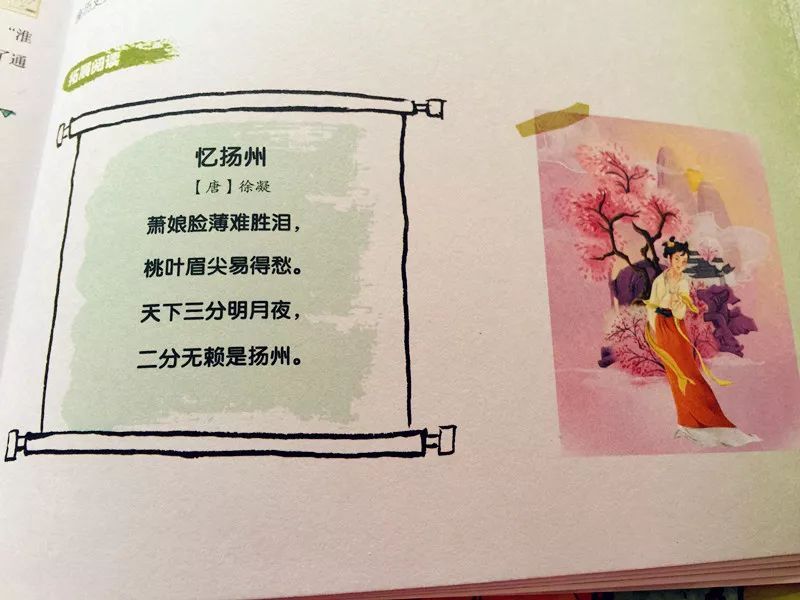 “淮
了通
拓展阅读
忆扬州
【唐】徐凝
萧娘脸薄难胜泪，
桃叶眉尖易得愁。
天下三分明月夜，
二分无赖是扬州。